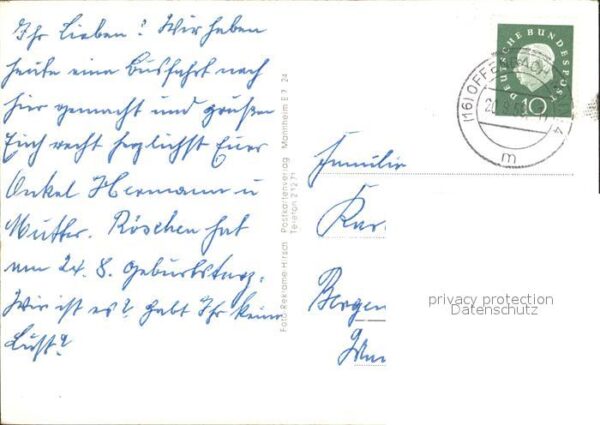 Ihr Lieben! Wir haben
heute eine Busfahrt nach
hier gemacht und grüßen
Euch recht herzlichst Euer
Onkel Hermann u
Mutter. Röschen hat
am 24. 8. Geburtstag.
Wie ist es? habt Ihr keine
Lust?
Foto: Reklame-Hirsch Postkartenverlag Mannheim E 7, 24
Telefon 2 12 71
DEUTSCHE BUNDESPOST
10
(16) OFFENBACH
20.8.
m
Familie
Kar
Bergen
privacy protection
Datenschutz